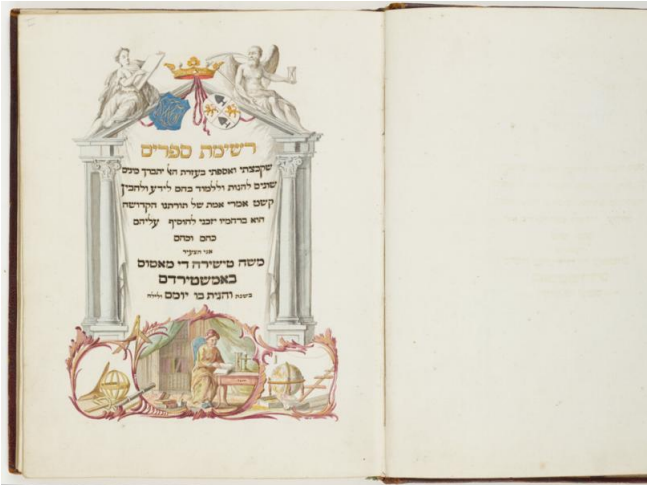 רשימת ספרים
שקבצתי ואספתי בעזרת האל יתברך מינים
שונים להגות וללמוד בהם לידע ולהבין
קשט אמרי אמת של תורתנו הקדושה
הוא ברחמיו יזכני להוסיף עליהם
כהם וכהם
אני הצעיר
משה טישירה די מאטוס
באמשטירדם
בשנת והגית בו יומם ולילה